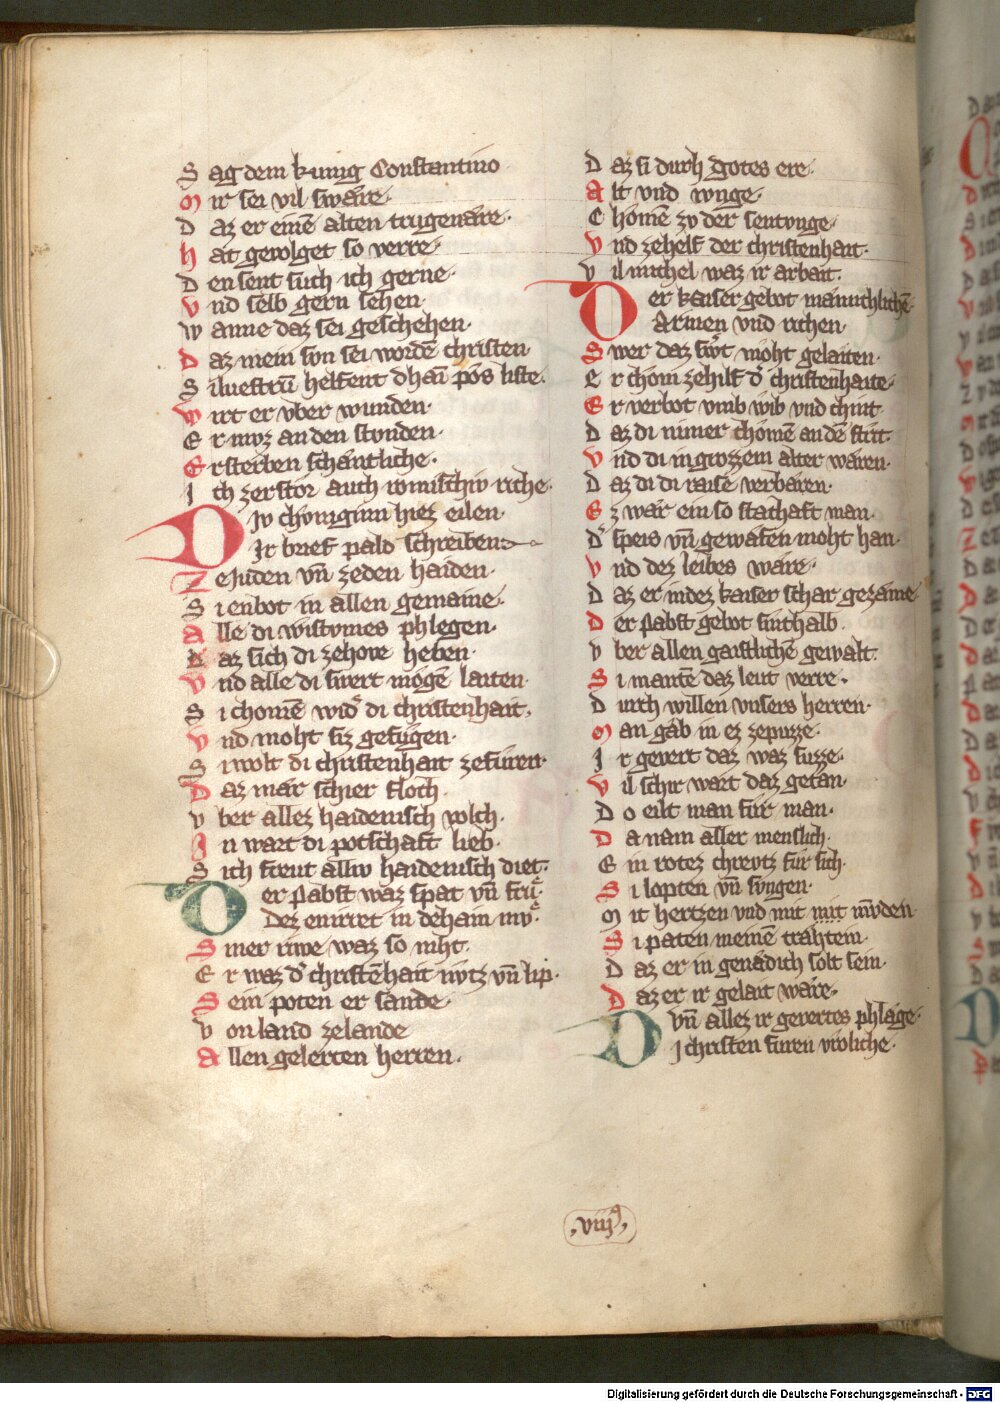 Sag dem kunig Constantino
Mir sei vil swäre·
Daz er einē alten trugenäre·
Hat geuolget so verre·
Den sent such ich gerne·
Vnd selb gern sehen·
Wanne daz sei geschehen·
Daz mein son sei wordē christen
Siluestrū helfent dhaī pôs liste·
Wirt er vber wunden·
Er mvz an den stvnden·
Ersterben schäntliche·
Ich zerstôr auch römischiv riche·
Div chvniginn hiez eilen·
Ir brief pald schreiben
Ze Juden vn̄ zeden haiden·
Si enbot in allen gemaine·
Alle di wistvmes phlegen·
Daz sich di zehove heben·
Vnd alle di swert mögē laiten·
Si chomē wid' di christenhait·
Vnd moht siz gefügen·
Si wolt di christenhait zefüren·
Daz mär schier floch·
Vber allez haidenisch volch·
In wart di potschaft lieb·
Sich freut alliv haidenisch diet·
Der pabst waz spat vn̄ frü·
Dez enirret in dehain mü·
Siner riwe waz so niht·
Er waz d' christēhait nvtz vn̄ lip·
Sein poten er sande·
Von land zelande
Allen gelerten herren·
Daz si durh gotes ere·
Alt vnd ivnge·
Chömē zv der sentvnge·
Vnd zehelf der christenhait·
Vil michel waz ir arbait·
Der kaiser gebot männichlichē·
Armen vnd richen·
Swer daz sw't moht gelaiten·
Er chom zehilf d' christenhaite·
Er verbot vmb wib vnd chint·
Daz di nimer chömē an dē strit·
Vnd di in grozzem alter wären·
Daz di di raise verbären·
Ez wär ein so stathaft man·
D' speis vn̄ gewäfen moht han·
Vnd dez leibes wäre·
Daz er in dez kaiser schar gezäme
Der pabst gebot sinthalb·
Vber allen gaistlichē gewalt·
Si mantē daz leut verre·
Durch willen vnsers herren·
Man gab in ez zepuzze·
Ir gevert daz waz suzze·
Vil schir wart daz getan·
Do eilt man für man·
Da nam aller menslich·
Ein rotez chreutz für sich·
Si lopten vn̄ svngen·
Mit hertzen vnd mit mit mvden
Si paten meinē trähtein·
Daz er in genädich solt sein·
Daz er ir gelait wäre·
Vn̄ allez ir gevertes phläge·
Di christen füren vroliche·
·viiij·
Digitalisierung gefördert durch die Deutsche Forschungsgemeinschaft - DFG